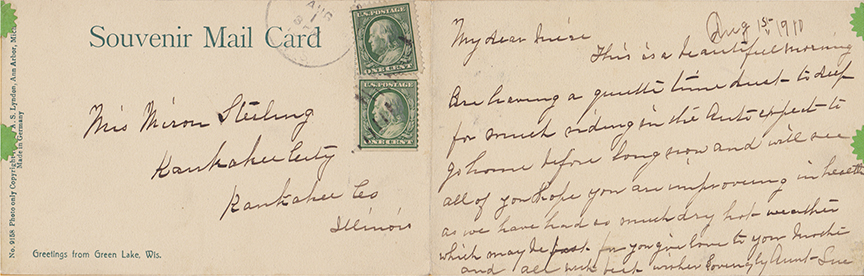 No. 9158 Photo only Copyright A. S. Lyndon, Ann Arbor, Mich.
Made in Germany
Souvenir Mail Card
AUG
1
ONE CENT
ONE CENT
Miss Miron Sterling
Kankakee City
Kankakee Co
Illinois
Greetings from Green Lake, Wis.
Aug 1st 1910
My dear
This is a beautiful morning
Are having a quiette time dust to deep
for much riding in the Auto expect to
go home before long now and will see
all of you hope you are improving in health
as we have had so much dry hot weather
which may be best for you give love to your
and all with best wishes Lovingly Aunt Sue